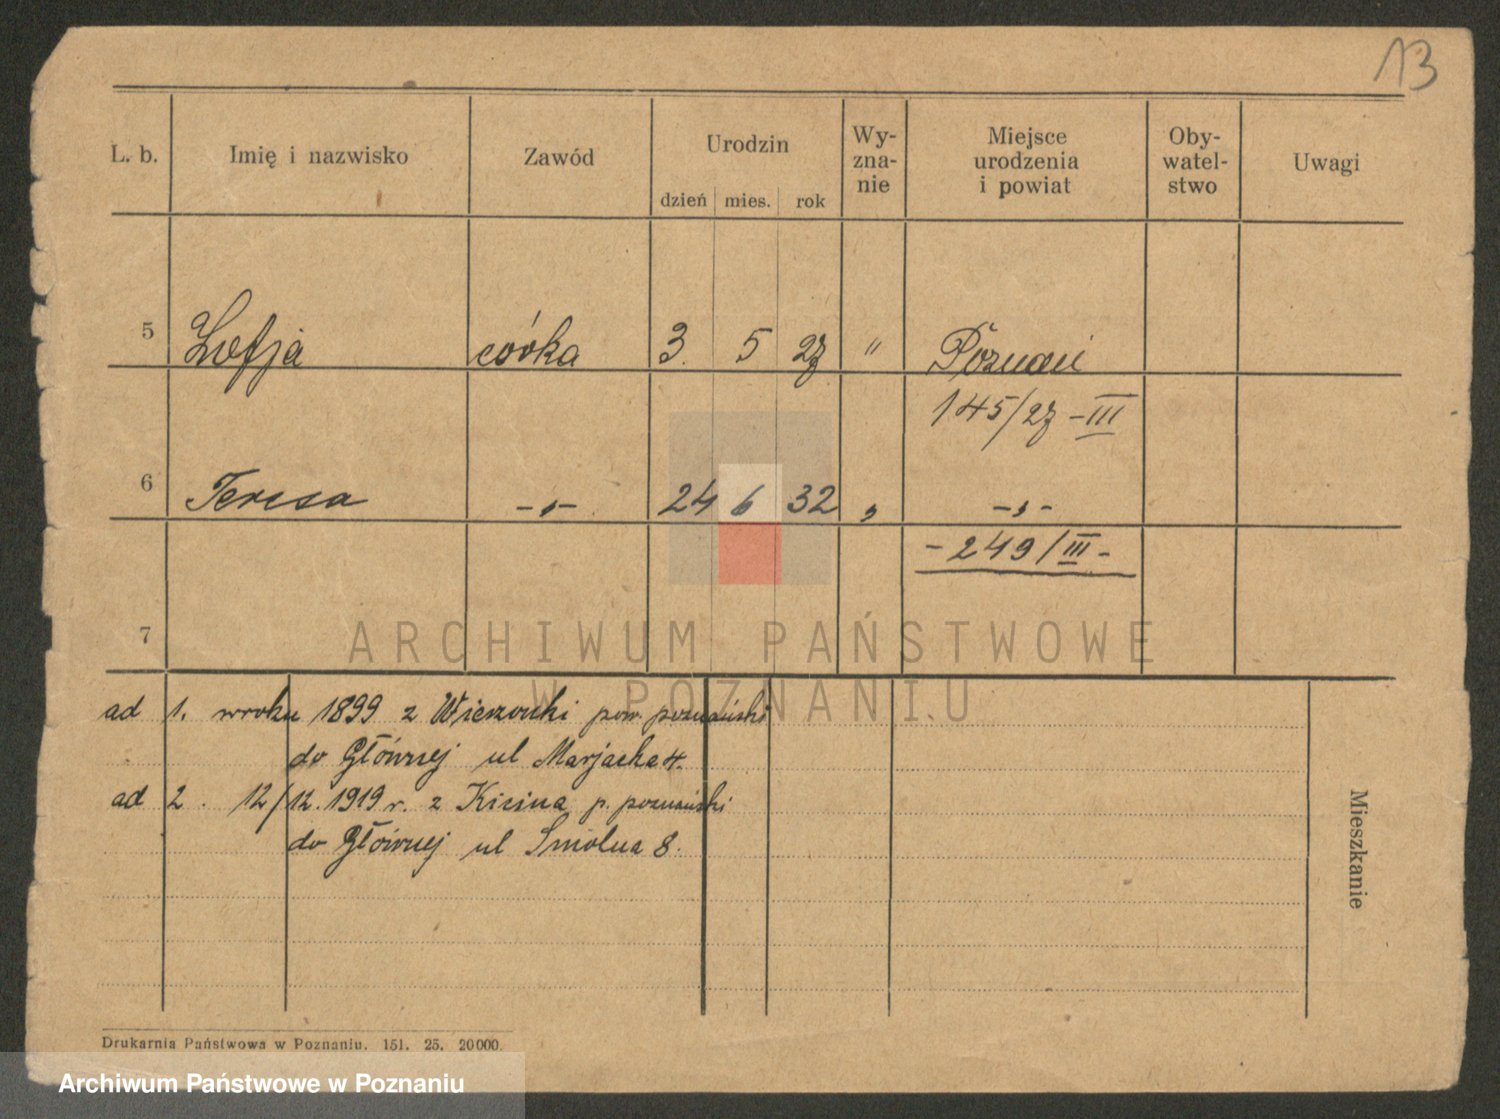 13
L. b. Imię i nazwisko Zawód Urodzin Wy-zna-nie Miejsce urodzenia i powiat Oby-watel-stwo Uwagi
dzień mies. rok
5 Zofja córka 3. 5 27 " Poznań
145/27 - III
6 Teresa -„- 24 6 32 „ -„-
- 249/III -
7
ARCHIWUM PAŃSTWOWE
W POZNANIU
ad 1. w roku 1899 z Wierzonki pow. poznański
do Głównej ul Marjacka 4.
ad 2. 12/12. 1919 r. z Kicina p. poznański
do Głównej ul Smolna 8.
Mieszkanie
Drukarnia Państwowa w Poznaniu. 151. 25. 20000.
Archiwum Państwowe w Poznaniu